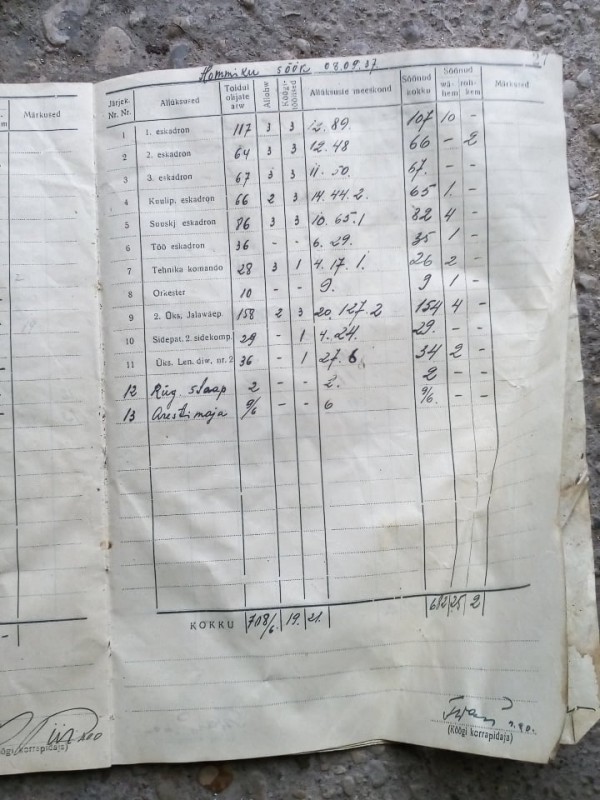 Hommiku söök 08.09.37
Märkused
Järjek. Nr. Nr. Allüksused Toidul olijate arv Allohv. Köögitöölised Allüksuste meeskond Söönud kokku Söönud vähem rohkem Märkused
1 1. eskadron 117 3 3 12. 89. 107 10 -
2 2. eskadron 64 3 3 12. 48 66 - 2
3 3. eskadron 67 3 3 11. 50. 67. - -
4 Kuulip. eskadron 66 2 3 14. 44. 2. 65 1. -
5 Suuskj eskadron 86 3 3 10. 65. 1 82 4 -
6 Töö eskadron 36 - - 6. 29. 35 1 -
7 Tehnika komando 28 3 1 4. 17. 1. 26 2 -
8 Orkester 10 - - 9. 9 1 -
9 2. Üks. Jalawäep. 158 2 3 20. 127. 2 154 4 -
10 Sidepat. 2. sidekomp. 29 - 1 4. 24. 29. - -
11 Üks. Len. diw. nr. 2 36 - 1 27. 6 34 2 -
12 Rüg. staap 2 - - 2. 2 - -
13 Arestimaja 9/6 - - 6 9/6. - -
KOKKU 708/6 19. 21. 682 25 2
(Köögi korrapidaja)
Köögi korrapidaja)